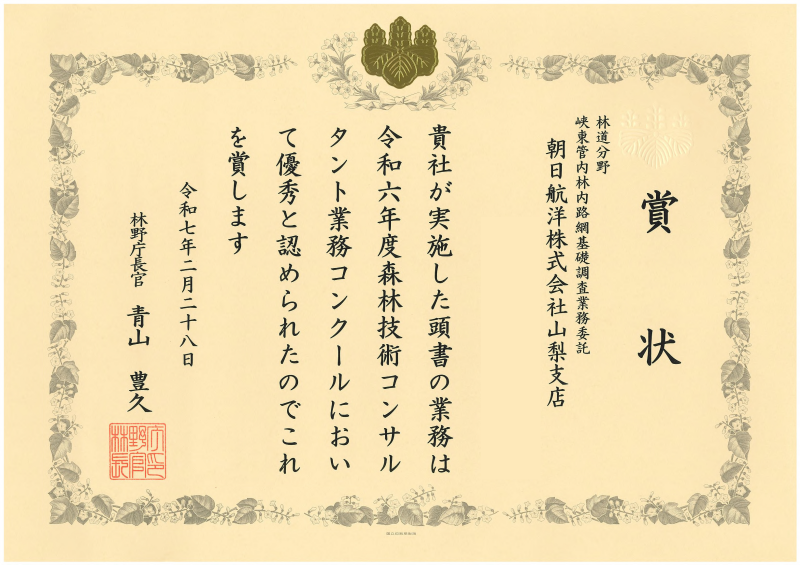 賞状
林道分野
峡東管内林内路網基礎調査業務委託
朝日航洋株式会社山梨支店
貴社が実施した頭書の業務は
令和六年度森林技術コンサル
タント業務コンクールにおい
て優秀と認められたのでこれ
を賞します
令和七年二月二十八日
林野庁長官 青山 豊久